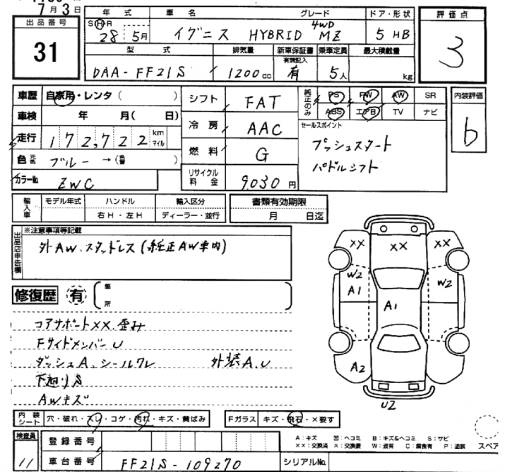 7月3日
出品番号 31
年式 S H R 28年5月
車名 イグニス HYBRID 4WD MZ グレード
ドア・形状 5 HB
評価点 3
型式 DAA-FF21S
排気量 1200cc
新車保証書 有無記入 有
乗車定員 5人
最大積載量 kg
車歴 自家用・レンタ( )
車検 年 月( 日)
走行 172,722 km マイル
色 元色 ブルー→(替色 )
カラーNo ZWC
シフト FAT
冷房 AAC
燃料 G
リサイクル料金 9,030円
純正のみ PS PW AW SR
ABS エアB TV ナビ
セールスポイント
プッシュスタート
パドルシフト
内装評価 b
輸入車 モデル年式 年 ハンドル 右H・左H 輸入区分 ディーラー・並行
書類有効期限 月 日迄
出品店申告欄 ※注意事項等記載
外AW.スタッドレス(純正AW車内)
修復歴 有 箇所
コアサポートXX.歪み
FサイドメンバーU
ダッシュA.シールワレ 外装A.U
下廻りS
AWキズ
XX XX XX
W2 A1 A1 W2
A2
U2
内装シート 穴・破れ・スレ・コゲ・汚れ・キズ・黄ばみ
Fガラス キズ・飛石・X要す
検査員 11
登録番号
車台番号 FF21S-109270
シリアルNo.
A:キズ 凹:ヘコミ B:キズ&ヘコミ S:サビ
XX:交換済 X:交換要 W:波有 C:腐食有 P:塗装
スペア